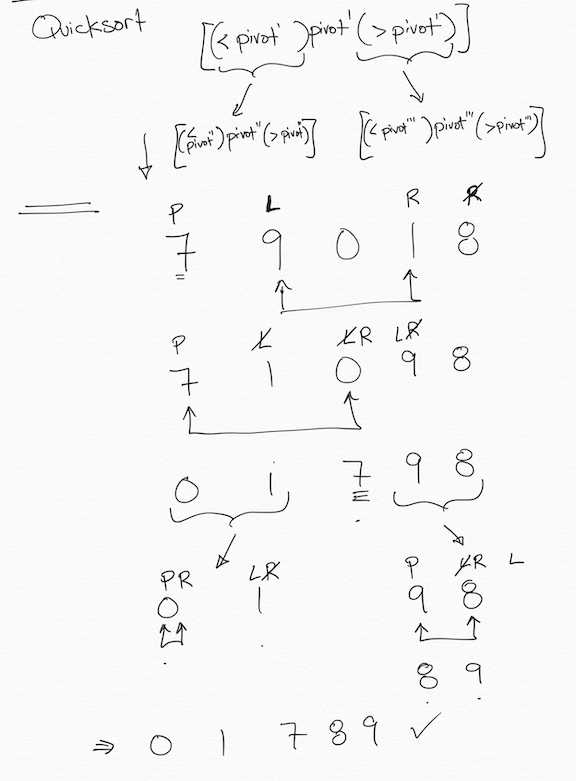 Quicksort
[(< pivot')pivot'(> pivot')]
[(< pivot'')pivot''(>pivot'')] [(< pivot''')pivot'''(>pivot''')]
P L R R
7 9 0 1 8
P L L R L R
7 1 0 9 8
0 1 7 9 8
P R L R P L R L
0 1 9 8
8 9
⇒ 0 1 7 8 9 ✓